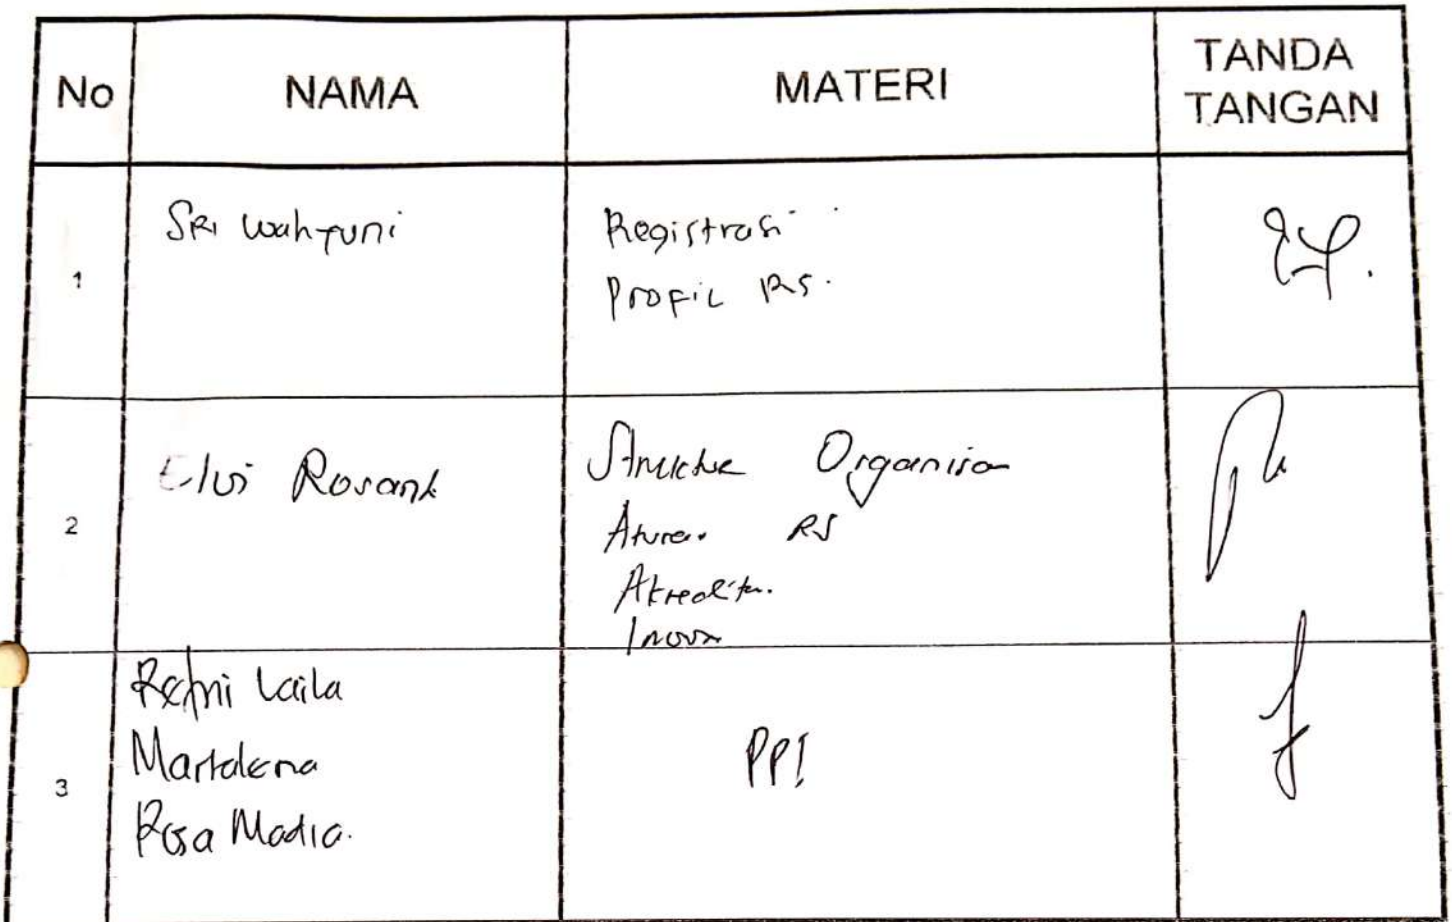 No NAMA MATERI TANDA TANGAN
1 SRI Wahyuni Registrasi
Profil RS.
2 Elvi Rosanti Struktur Organisasi
Aturan RS
Akredita.
Inova
3 Laila
Martalena
Rosa Madia.
PPI